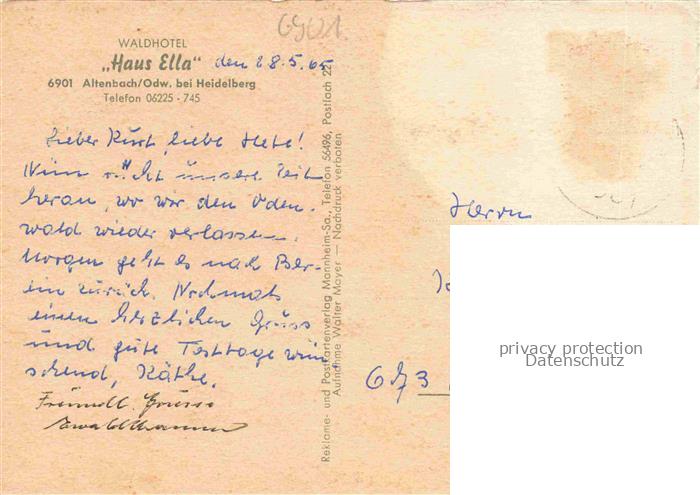 6901
WALDHOTEL
„Haus Ella“ den 28.5.65
6901 Altenbach/Odw. bei Heidelberg
Telefon 06225 - 745
Lieber Kurt, liebe Hete!
Nun rückt unsere Zeit
heran, wo wir den Oden-
wald wieder verlassen.
Morgen geht es nach Ber-
in zurück. Nochmals
einen herzlichen Gruss
und gute Festtage wün
schend, Käthe.
Freundl. Grüsse
Reklame- und Postkartenverlag Mannheim-Sa., Telefon 56496, Postfach 22
Aufnahme Walter Mayer — Nachdruck verboten
Herrn
privacy protection
Datenschutz